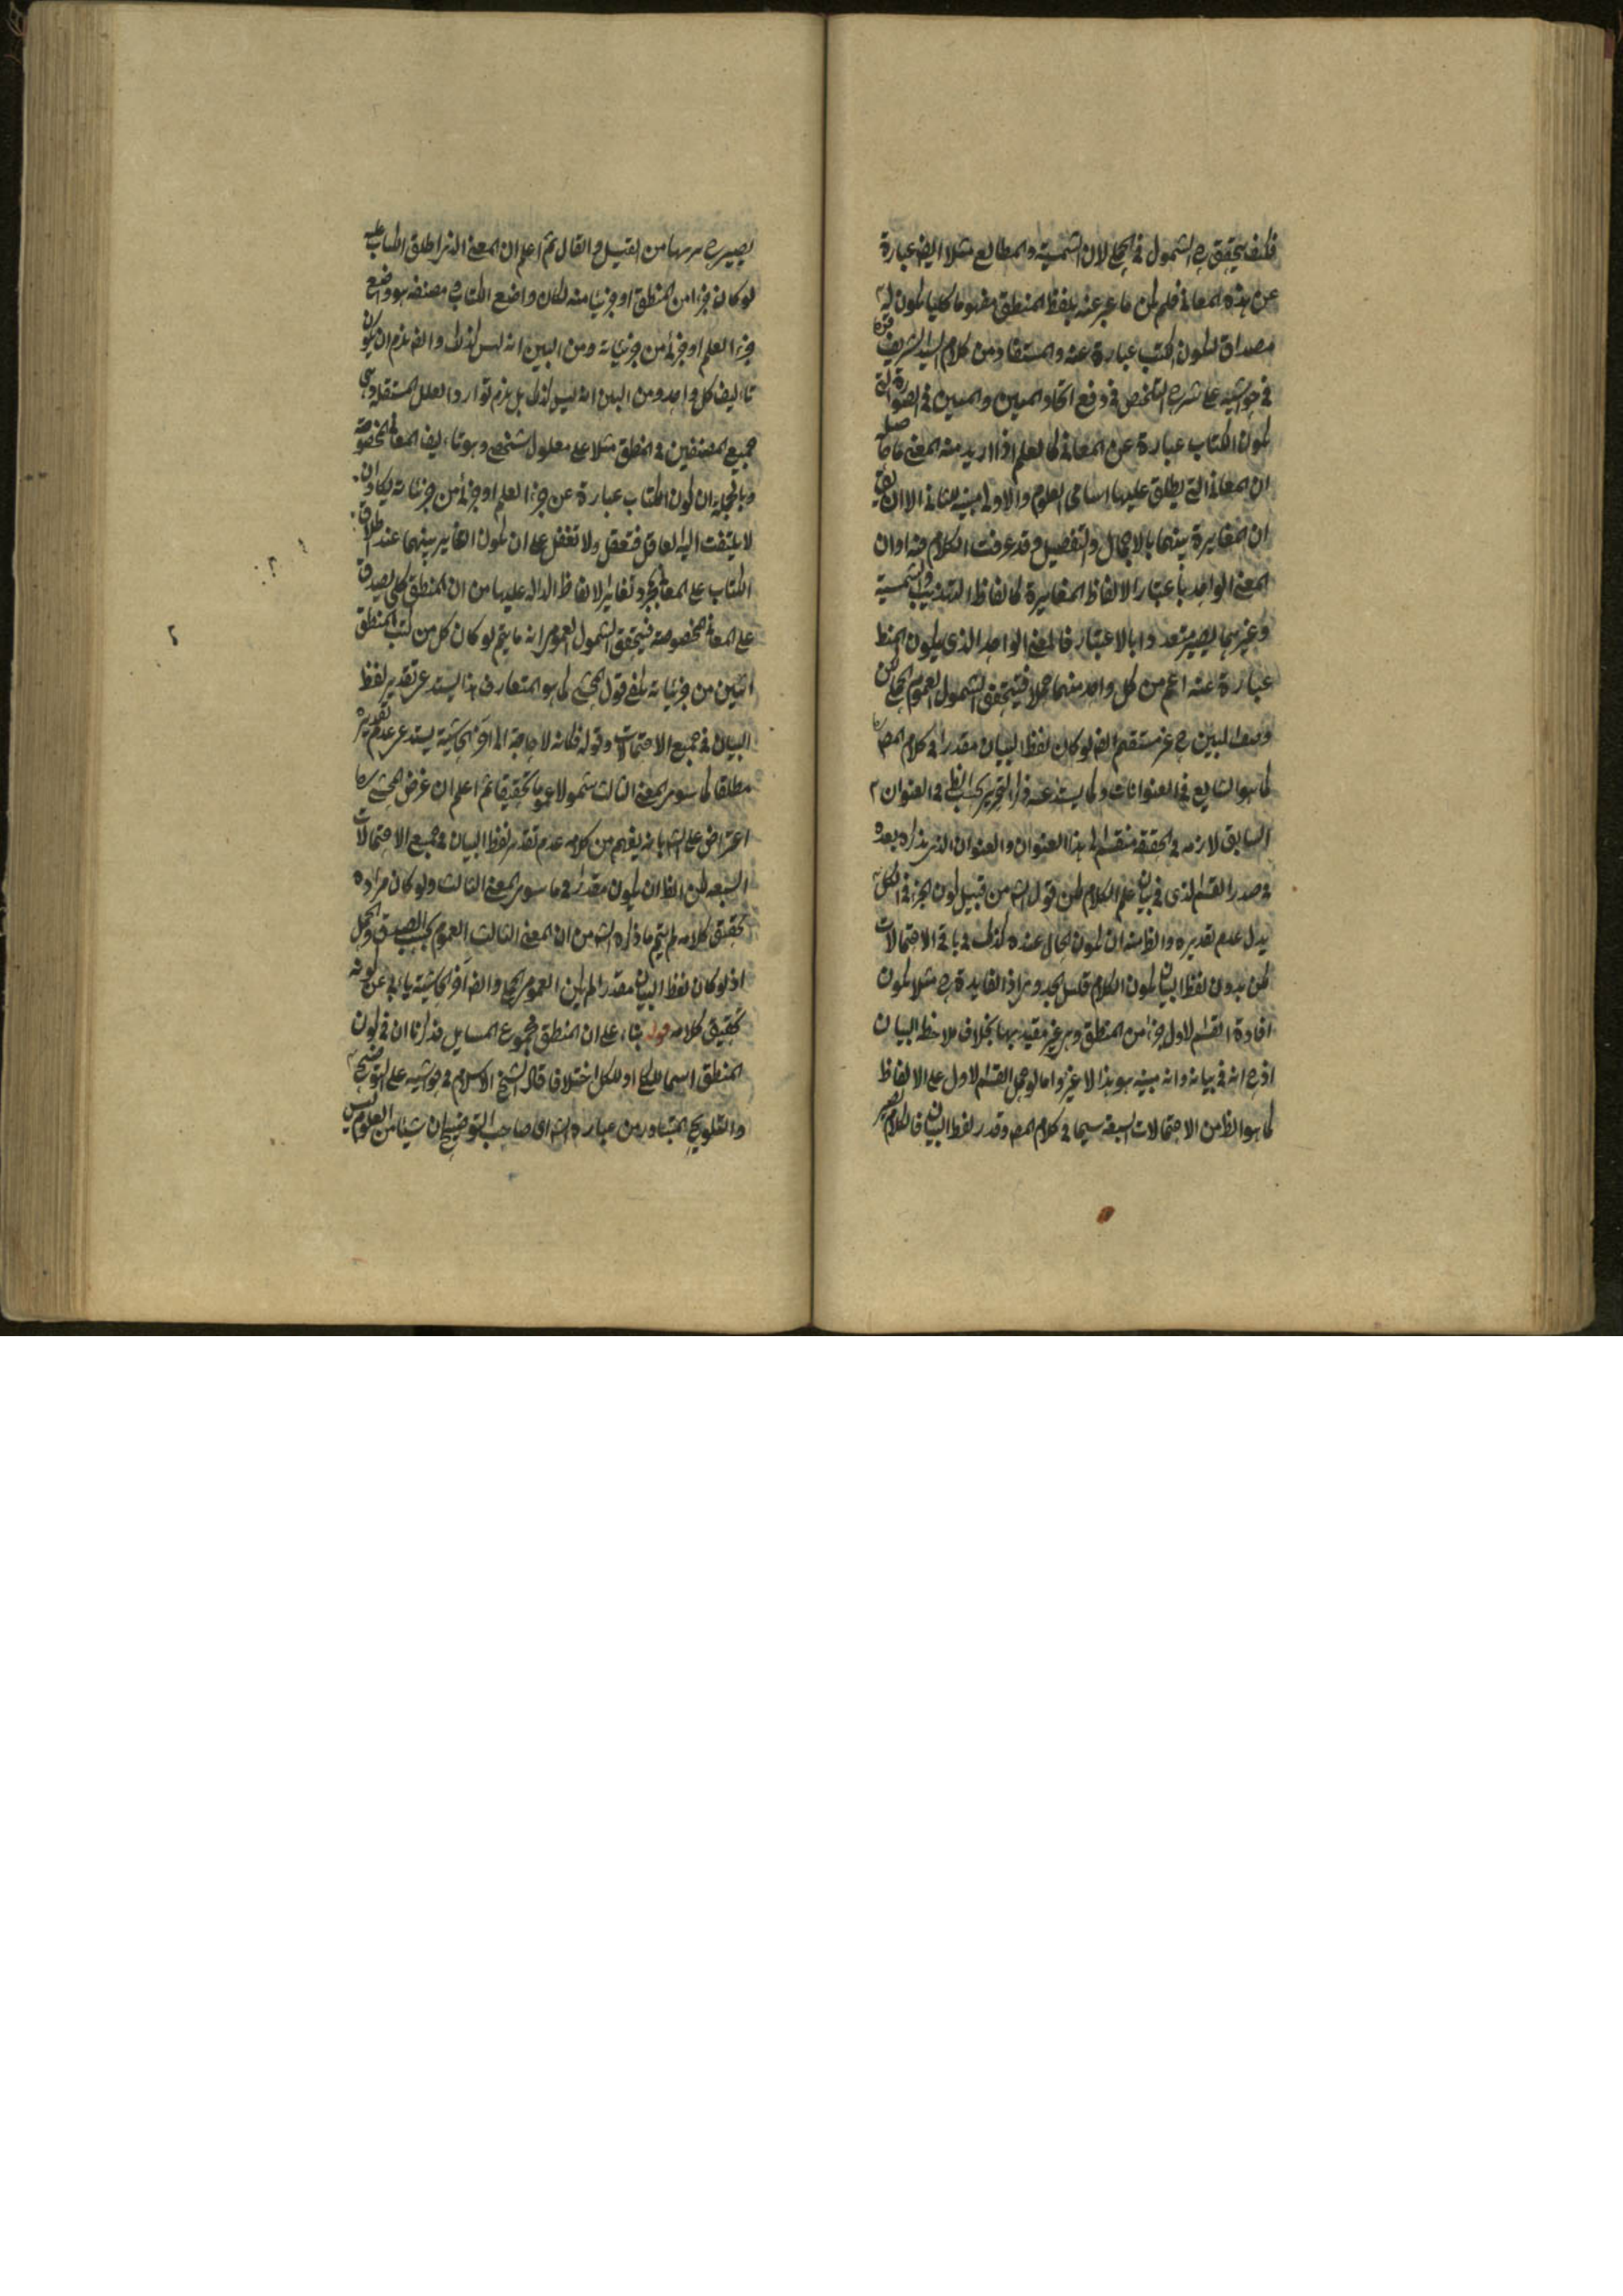 فكيف يتحقق ح الشمول في الحمل لان الشمسية والمطالع مثلا ايض عبارة
عن هذه المعاني فلم يكن ما عبر عنه بلفظ المنطق مفهوما كليا يكون له
مصداق لتكون الكتب عبارة عنه والمستفاد من كلام السيد الشريف قده
في حواشيه على شرح التلخيص في دفع اتحاد المبين والمبين في الصورة التي
يكون الكتاب عبارة عن المعاني كالعلم اذا اريد منه المعنى ما حاصله
ان المعاني التي يطلق عليها اسامي العلوم والاولى مبينة للثانية الا ان يق
ان المغايرة بينهما بالاجمال والتفصيل وقد عرفت الكلام فيه او ان
المعنى الواحد باعتبار الالفاظ المغايرة كالفاظ التهذيب والشمسية
وغيرهما يصير متعددا بالاعتبار فالمعنى الواحد الذي يكون المنطق
عبارة عنه اعم من كل واحد منهما حملا فيتحقق الشمول العموم الحملي لكن
وصف المبين ح غير مستقيم ايض لو كان لفظ البيان مقدرا في كلام المص
كما هو الشايع في العنوانات وكما يستدعيه التحرير بحسب الظ في العنوان
السابق لانه في الحقيقة منقسم الى هذا العنوان والعنوان الذي يذكره بعده
في صدر القسم الذي في بيان علم الكلام لكن قول الش من قبيل كون الجزء في الكل
يدل عدم تقديره والظ منه ان يكون الحال عنده كذلك في باقي الاحتمالات
لكن بدون لفظ البيان يكون الكلام قليل الجدوى اذ الفايدة ح مثلا يكون
افادة القسم الاول جزءا من المنطق وهي غير مقيد بها بخلاف ملاحظة البيان
اذ ح انه في بيانه وانه مبينه هو هذا لا غير واما لو حمل القسم الاول على الالفاظ
كما هو الظ من الاحتمالات السبعة سيما في كلام المص وقدر لفظ البيان فالكلام يصير
من القيل والقال ثم اعلم ان المعنى الذي اطلق الكتاب عليه
لو كان جزءا من المنطق او جزئيا منه لكان واضع الكتاب ومصنفه هو واضع
جزء العلم او جزئي من جزئياته ومن البين انه ليس كذلك وايض يلزم ان يكون
تأليف كل واحد ومن البين انه ليس كذلك بل يلزم توارد العلل المستقلة وهي
جميع المصنفين في المنطق مثلا على معلول شخصي وهو تأليف المعاني المخصوصة
وبالجملة ان كون الكتاب عبارة عن جزء العلم او جزئي من جزئياته يكاد ان
لا يلتفت اليه العاقل فتعقل ولا تغفل على ان يكون التغاير بينهما عند اطلاق
الكتاب على المعاني بمجرد تغاير الالفاظ الدالة عليها من ان المنطق كلي يصدق
على المعاني المخصوصة فيتحقق الشمول العموم انه ما يتم لو كان كل من كتب المنطق
اثنين من جزئياته بقي قول المحشي كما هو المتعارف هذا يستدعي تقدير لفظ
البيان في جميع الاحتمالات وقوله فكانه لا حاجة الى اخر الحاشية يستدعي عدم تقديره
مطلقا كما سوى المعنى الثالث شمولا عموما تحقيقا ثم اعلم ان غرض المحشي
اعتراض على الش بانه يفهم من كلامه عدم تقدير لفظ البيان في جميع الاحتمالات
السبعة لكن الظ ان يكون مقدرا في ما سوى المعنى الثالث ولو كان مراده
تحقيق كلامه لم يتم ما ذكره الش من ان المعنى الثالث العموم بحسب الصدق والحمل
اذ لو كان لفظ البيان مقدرا لم يكن العموم الحملي وايض اخر الحاشية يابى عن كونه
تحقيق كلامه قوله بناء على ان المنطق مجموع المسايل قد ذكرنا ان في كون
المنطق اسما للكل او للكل اختلافا قال الشيخ الاسلام في حواشيه على التوضيح
والتلويح المتبادر من عبارة الش اي صاحب التوضيح ان شيئا من العلوم ليس